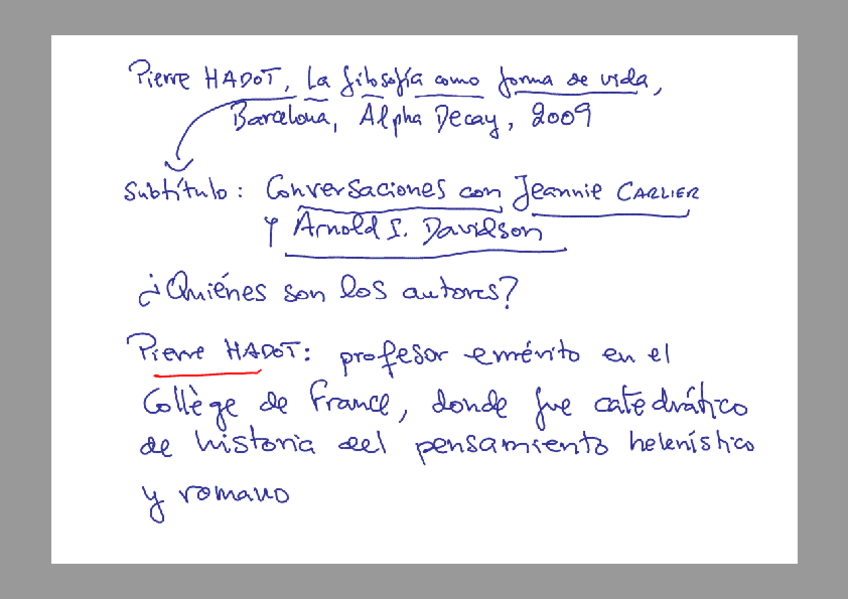 Pierre HADOT, La filosofía como forma de vida,
Barcelona, Alpha Decay, 2009
Subtítulo: Conversaciones con Jeannie CARLIER
y Arnold I. Davidson
¿Quiénes son los autores?
Pierre HADOT: profesor emérito en el
Collège de France, donde fue catedrático
de historia del pensamiento helenístico
y romano